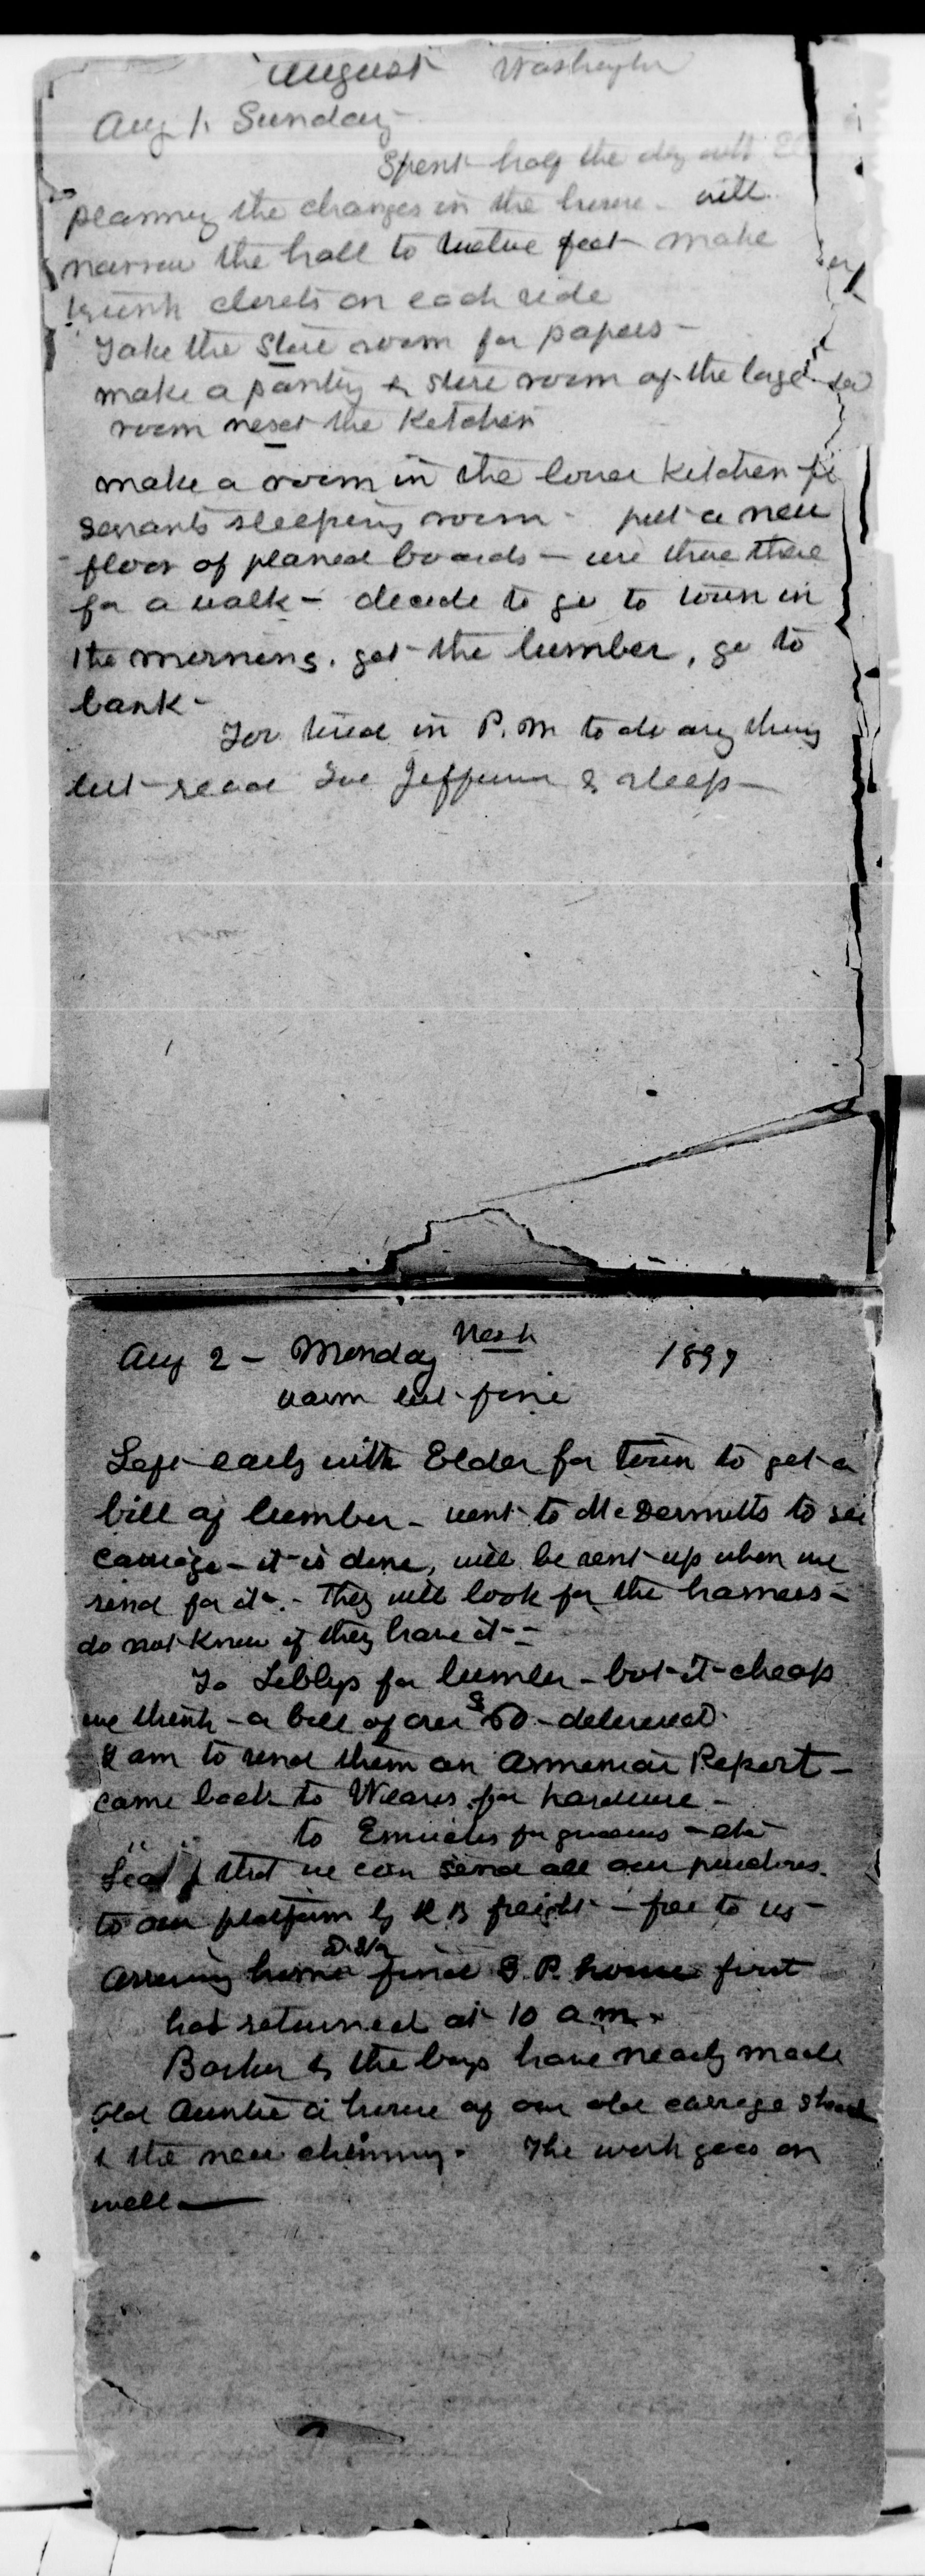 August Washington
Aug 1. Sunday -
Spent half the day with
planning the changes in the house - will
narrow the hall to twelve feet make
trunk closets on each side
Take the Store room for papers -
make a pantry & store room of the large
room next the Kitchen
make a room in the lower Kitchen for
servants sleeping room - put a new
floor of planed boards - use those there
for a walk - decide to go to town in
the morning. get the lumber, go to
bank -
Too tired in P.M. to do any thing
but read Jefferson & sleep -
Aug 2 - Monday Wash 1897
warm but fine
Left early with Elder for town to get a
bill of lumber - went to McDermotts to see
carriage - it is done, will be sent up when we
send for it. - They will look for the harness -
do not know if they have it -
To Libbys for lumber - bot it cheap
we think - a bill of over $50 - delivered.
I am to send them an Armenian Report -
came back to for hardware -
to Emrichs for groceries - etc
that we can send all our purchases
to our platform by R R freight - free to us -
Arriving home find
had returned at 10 a.m.
Barker & the boys have nearly made
old Auntie a house of our old carriage shed
& the new chimney. The work goes on
well -